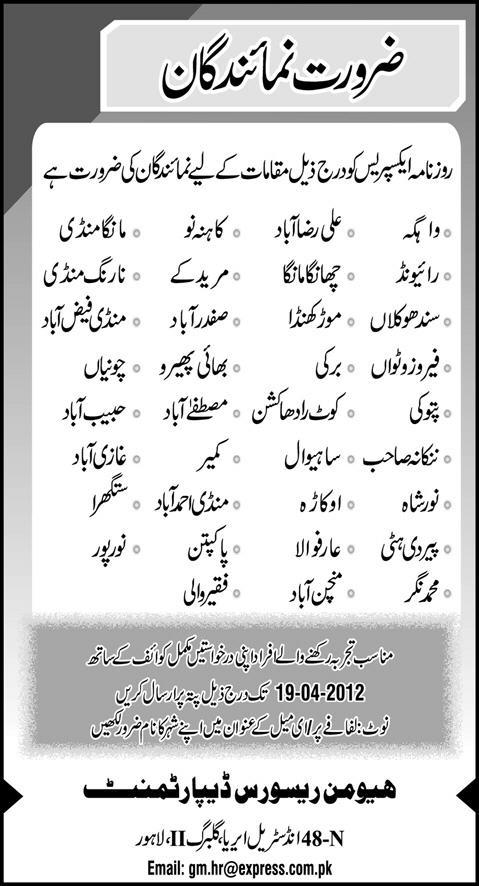 ضرورت نمائندگان
روزنامہ ایکسپریس کو درج ذیل مقامات کے لیے نمائندگان کی ضرورت ہے
◦ واہگہ ◦ علی رضا آباد ◦ کاہنہ نو ◦ مانگا منڈی
◦ رائیونڈ ◦ چھانگا مانگا ◦ مریدکے ◦ نارنگ منڈی
◦ سندھو کلاں ◦ موڑ کھنڈا ◦ صفدر آباد ◦ منڈی فیض آباد
◦ فیروز وٹواں ◦ برکی ◦ بھائی پھیرو ◦ چونیاں
◦ پتوکی ◦ کوٹ رادھا کشن ◦ مصطفےٰ آباد ◦ حبیب آباد
◦ ننکانہ صاحب ◦ ساہیوال ◦ کمیر ◦ غازی آباد
◦ نور شاہ ◦ اوکاڑہ ◦ منڈی احمد آباد ◦ ستگھرا
◦ پیر دی ہٹی ◦ عارفوالا ◦ پاکپتن ◦ نور پور
◦ محمد نگر ◦ منچن آباد ◦ فقیر والی
مناسب تجربہ رکھنے والے افراد اپنی درخواستیں مکمل کوائف کے ساتھ
19-04-2012 تک درج ذیل پتہ پر ارسال کریں
نوٹ: لفافے پر/ای میل کے عنوان میں اپنے شہر کا نام ضرور لکھیں
ھیومن ریسورس ڈیپارٹمنٹ
48-N انڈسٹریل ایریا، گلبرگ II، لاہور
Email: gm.hr@express.com.pk